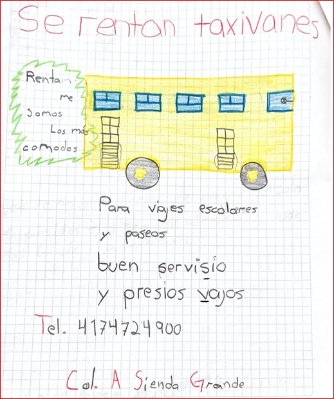 Se rentan taxivanes
Rentan
me
Somos
Los mas
comodos
Para viajes escolares
y paseos
buen servisio
y presios vajos
Tel. 4174724900
Col. A Sienda Grande